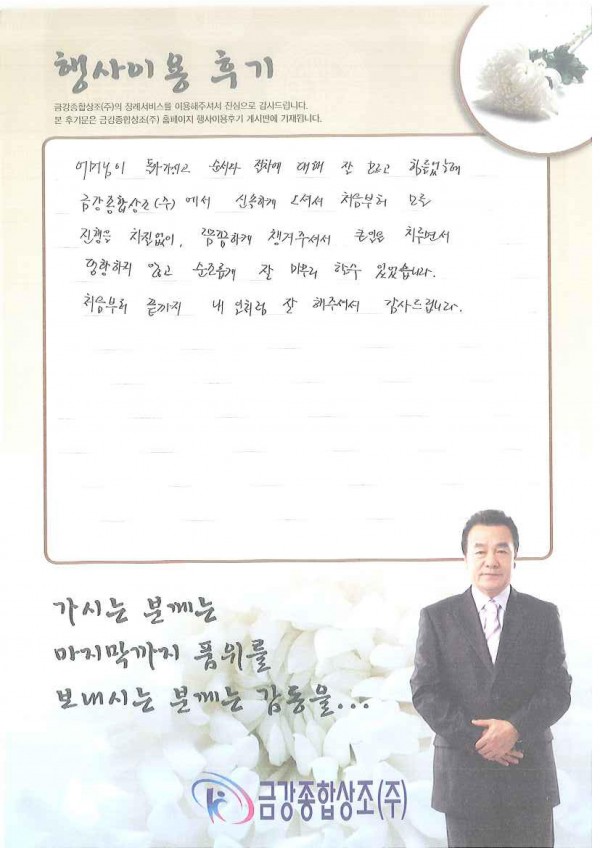 행사이용 후기
금강종합상조(주)의 장례서비스를 이용해주셔서 진심으로 감사드립니다.
본 후기문은 금강종합상조(주) 홈페이지 행사이용후기 게시판에 기재됩니다.
어머님이 돌아가시고 순서와 절차에 대해 잘 모르고 힘들었는데
금강종합상조(주)에서 신속하게 오셔서 처음부터 모든
진행을 차질없이, 꼼꼼하게 챙겨주셔서 큰일을 치루면서
당황하지 않고 순조롭게 잘 마무리 할수 있었습니다.
처음부터 끝까지 내 일처럼 잘 해주셔서 감사드립니다.
가시는 분께는
마지막까지 품위를
보내시는 분께는 감동을...
금강종합상조(주)